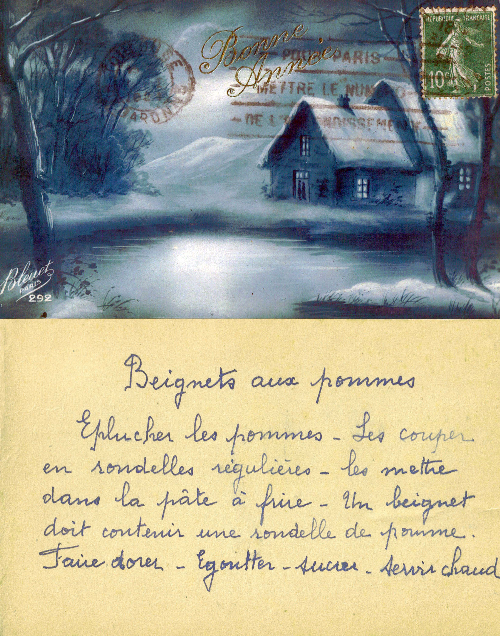 Bonne
Année
REPUBLIQUE FRANCAISE
10
POSTES
POUR PARIS
METTRE LE NUMERO
DE L'ARRONDISSEMENT
Bleuet
PARIS
292
Beignets aux pommes
Eplucher les pommes - Les couper
en rondelles régulières - les mettre
dans la pâte à frire - Un beignet
doit contenir une rondelle de pomme.
Faire dorer - Egoutter - sucrer - servir chaud